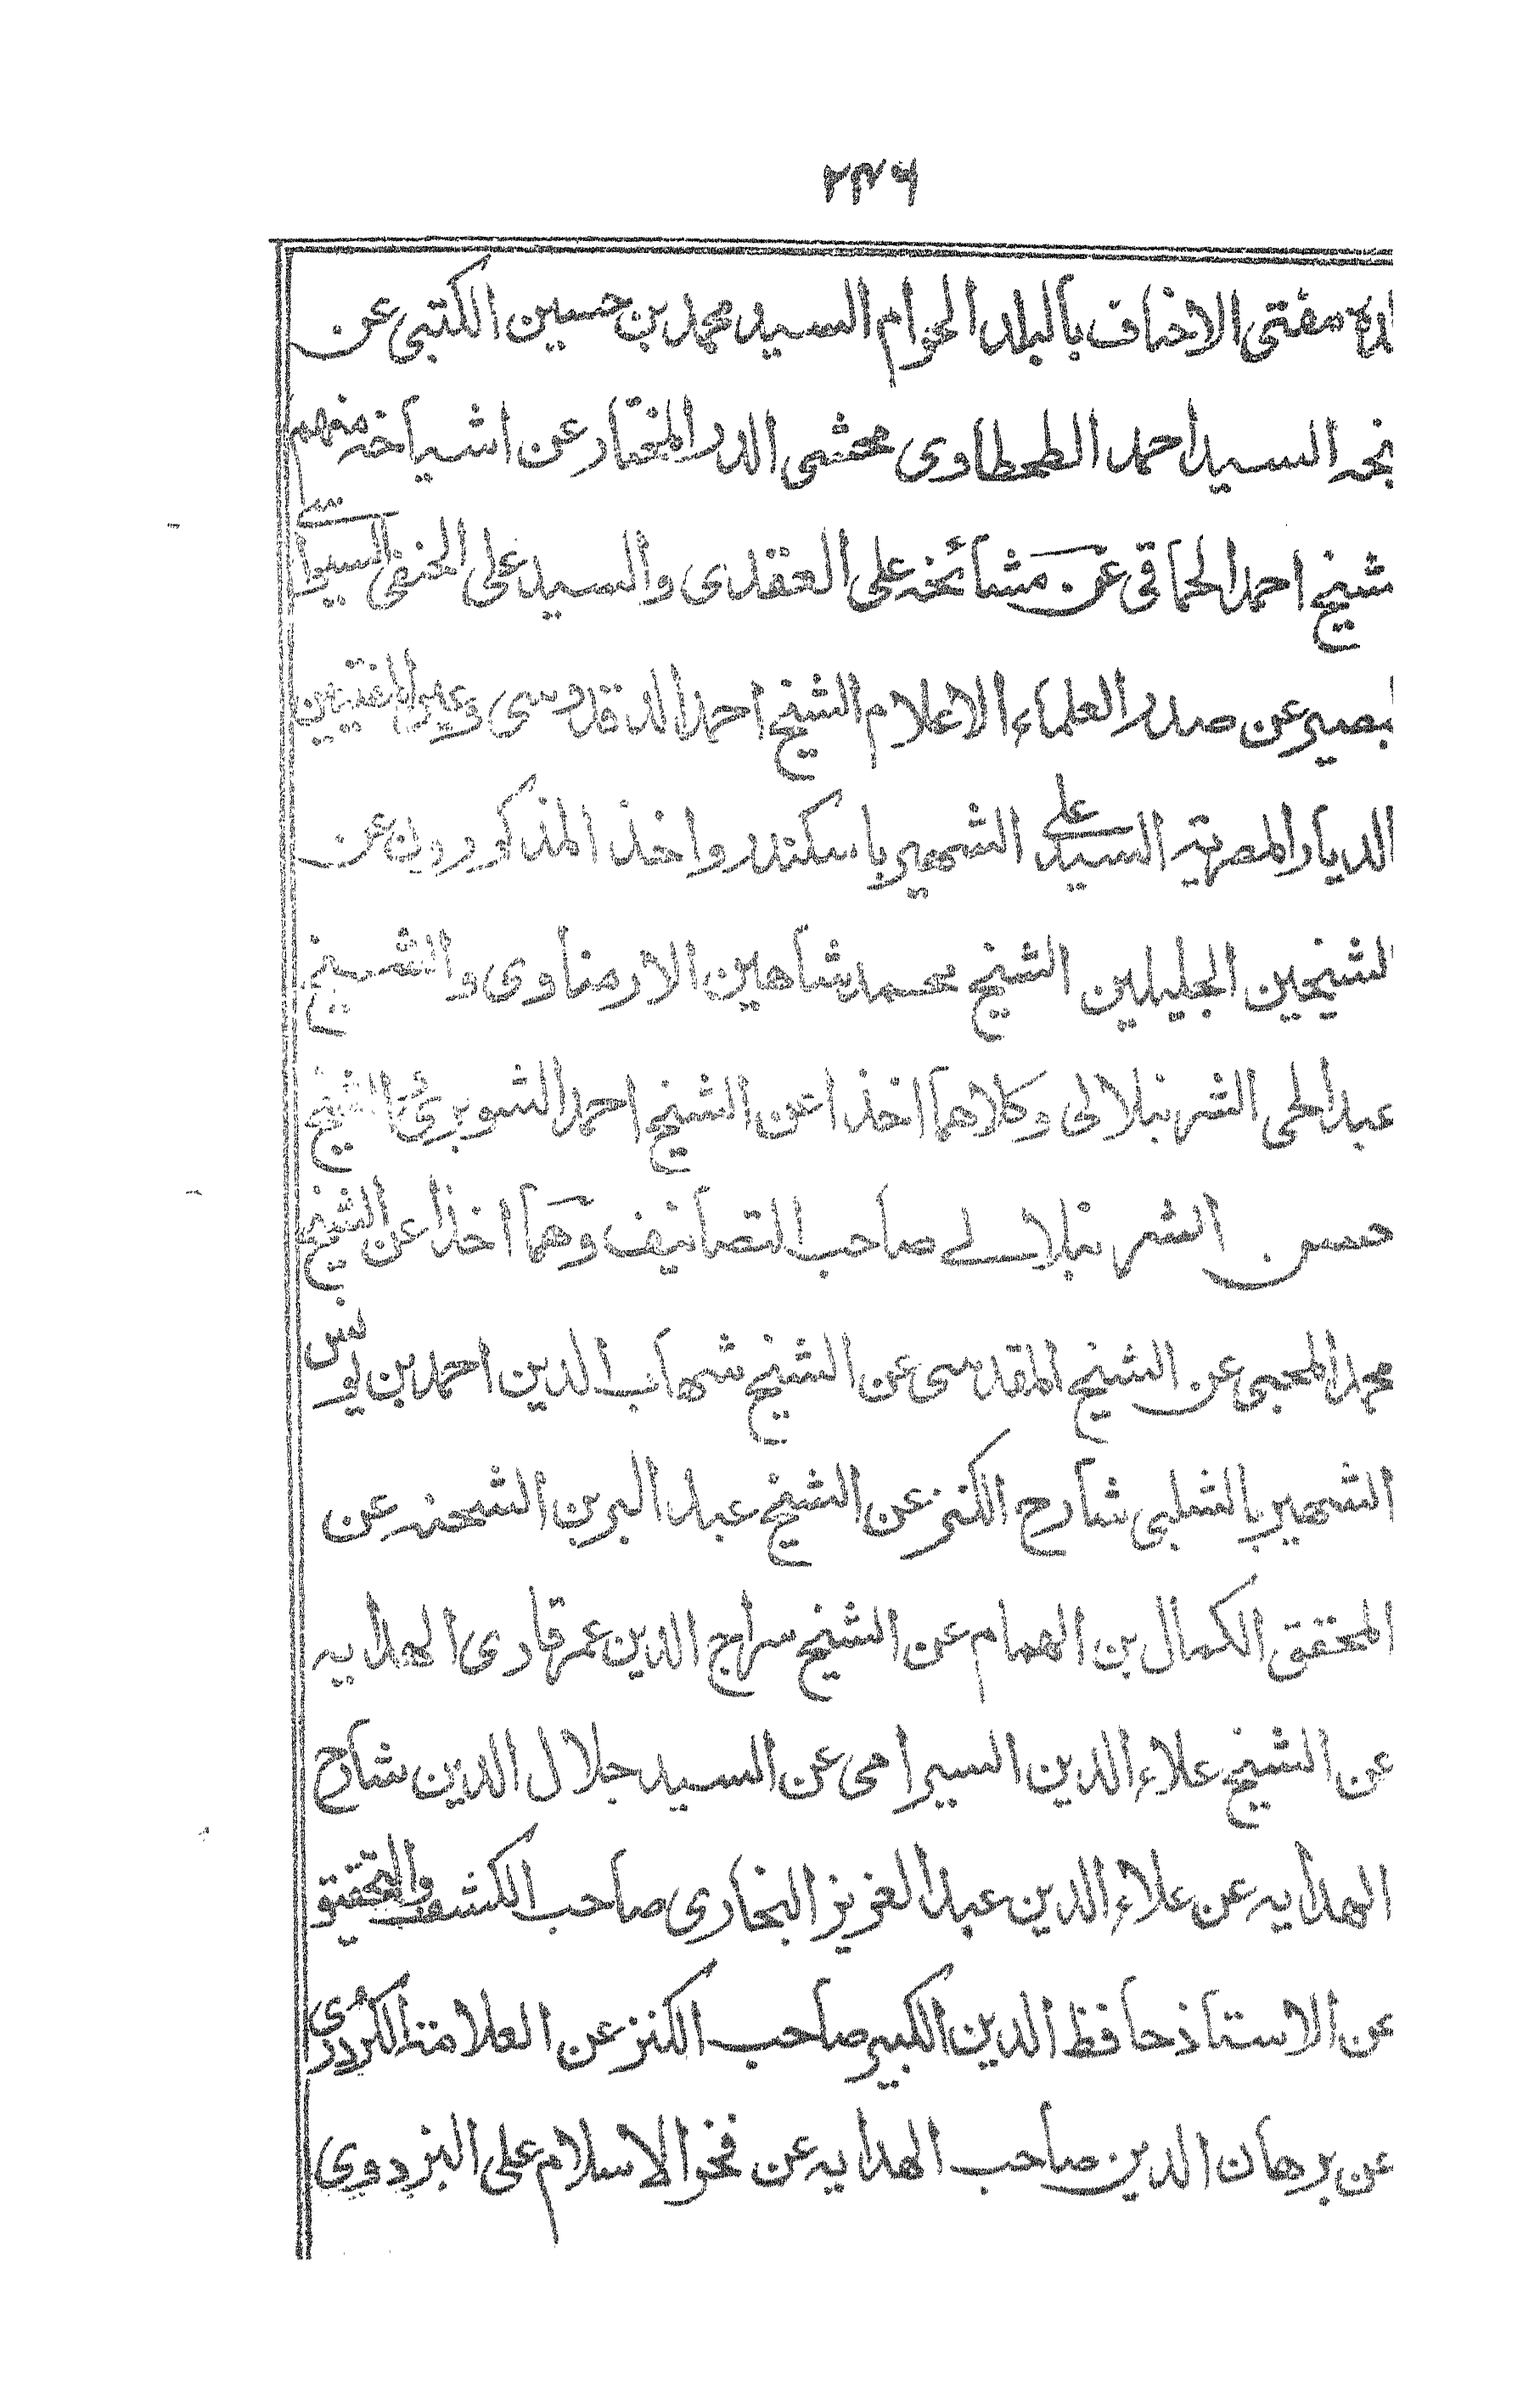 ٢٣٦
مفتى الاحناف بالبلد الحرام السيد محمد بن حسين الكتبى عن
السيد احمد الطحطاوى محشى الدر المختار عن اشياخه منهم
شيخ احمد الحماقى عن مشائخه على العقدى والسيد على الحنفى السيواسے
بصير عن صدر العلماء الاعلام الشيخ احمد الدقدوسى وعين المفتيين
الديار المصرية السيد على الشهير باسكندر واخذ المذكورون عن
لشيخين الجليلين الشيخ محمد شاهين الارمناوى والشيخ
عبد الحى الشرنبلالى وكلاهما اخذا عن الشيخ احمد الشوبرى والشيخ
حسن الشرنبلالے صاحب التصانيف وهما اخذا عن الشيخ
محمد المحبى عن الشيخ المقدسى عن الشيخ شهاب الدين احمد بن يونس
الشهير بالشلبى شارح الكنز عن الشيخ عبد البر بن الشحنه عن
المحقق الكمال بن الهمام عن الشيخ سراج الدين عمر قارى الهدايه
عن الشيخ علاء الدين السيرامى عن السيد جلال الدين شارح
الهدايه عن علاء الدين عبد العزيز البخارى صاحب الكشف والتحقيق
عن الاستاذ حافظ الدين الكبير صاحب الكنز عن العلامة الكردرى
عن برهان الدين صاحب الهدايه عن فخر الاسلام على البزدوي